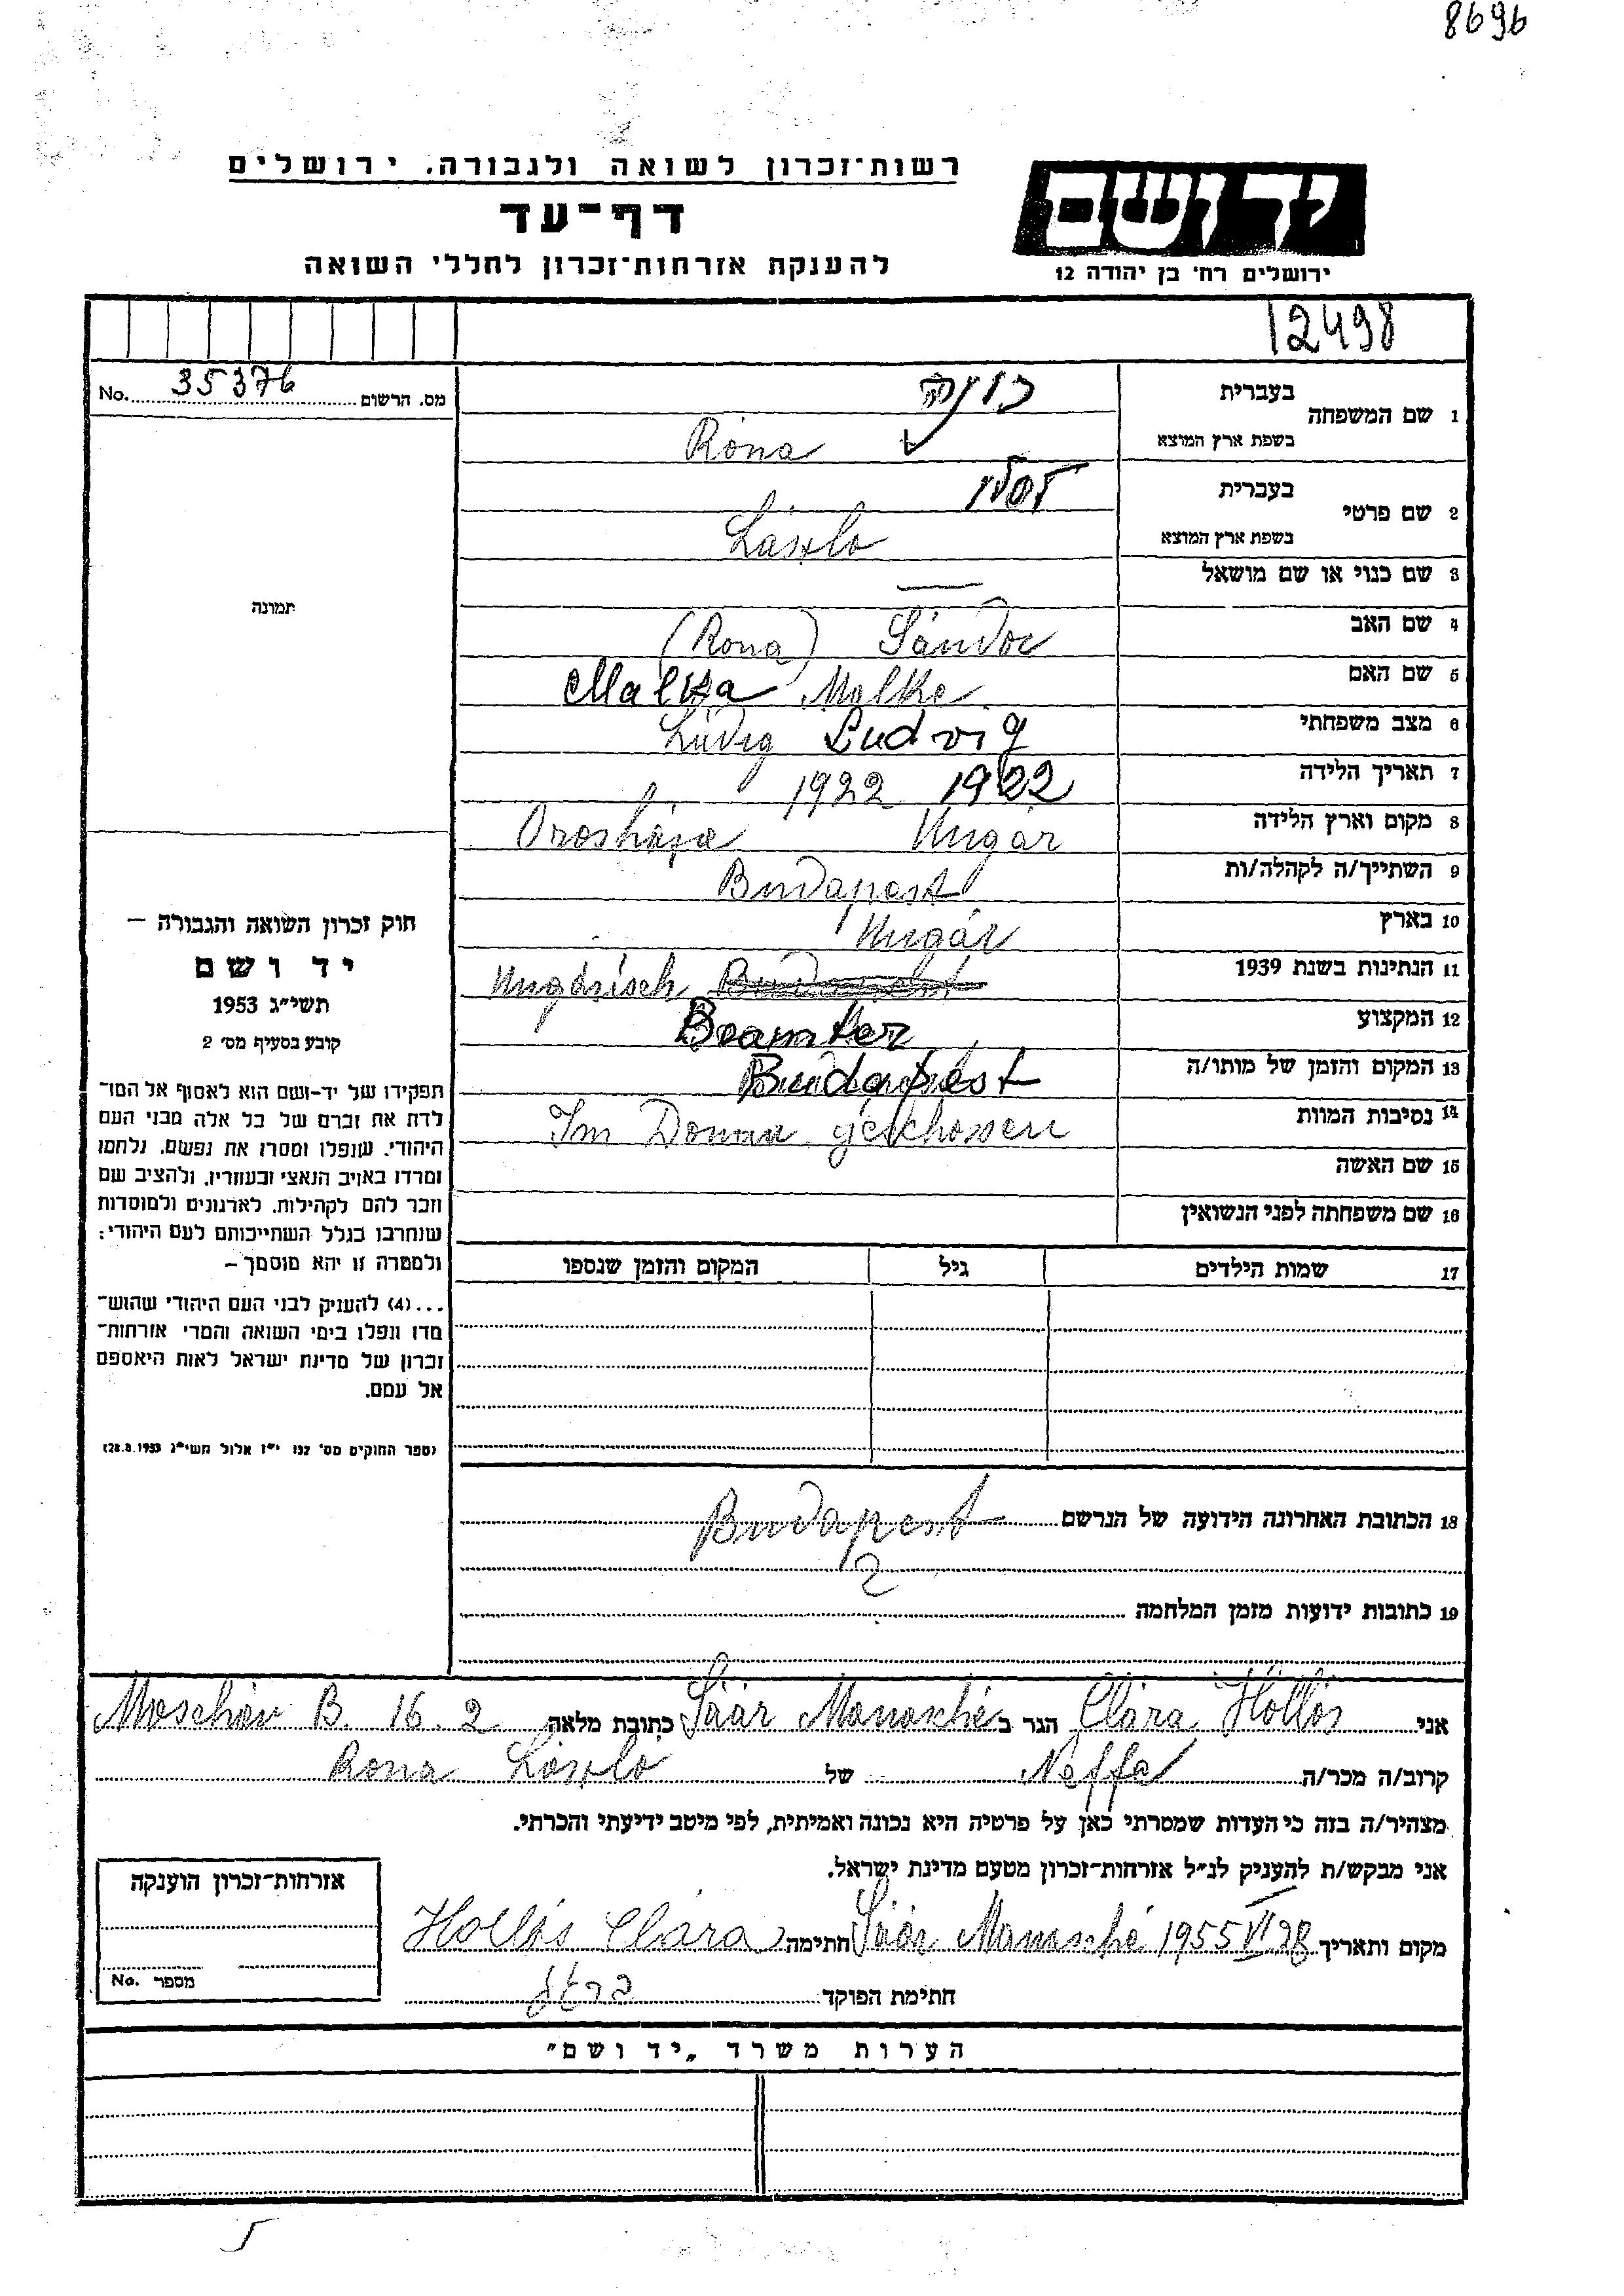 8696
רשות־זכרון לשואה ולגבורה. ירושלים
דף־עד
להענקת אזרחות־זכרון לחללי השואה
יד ושם
ירושלים רח׳ בן יהודה 12
12498
מס. הרשום 35376 No.
1 שם המשפחה
בעברית רונה
בשפת ארץ המוצא Róna
2 שם פרטי
בעברית
בשפת ארץ המוצא László
3 שם כנוי או שם מושאל —
4 שם האב Sándor (Rona)
5 שם האם Malka Malke
6 מצב משפחתי Lüdig Ludvig
7 תאריך הלידה 1922 1922
8 מקום וארץ הלידה Orosháza Ungár
9 השתייך/ה לקהלה/ות Budapest
10 בארץ Ungár
11 הנתינות בשנת 1939 Ungárisch Budapest
12 המקצוע Beamter
13 המקום והזמן של מותו/ה Budapest
14 נסיבות המוות Im Donau geschossen
15 שם האשה
16 שם משפחתה לפני הנשואין
17 שמות הילדים גיל המקום והזמן שנספו
תמונה
חוק זכרון השואה והגבורה –
יד ושם
תשי״ג 1953
קובע בסעיף מס׳ 2
תפקידו של יד-ושם הוא לאסוף אל המו־
לדת את זכרם של כל אלה מבני העם
היהודי. שנפלו ומסרו את נפשם. נלחמו
ומרדו באויב הנאצי ובעוזריו. ולהציב שם
וזכר להם לקהילות. לארגונים ולמוסדות
שנחרבו בגלל השתייכותם לעם היהודי:
ולמטרה זו יהא מוסמך –
...(4) להעניק לבני העם היהודי שהוש־
מדו ונפלו בימי השואה והמרי אזרחות־
זכרון של מדינת ישראל לאות היאספם
אל עמם.
(ספר החוקים מס׳ 132 י״ז אלול תשי״ג 28.8.1953)
18 הכתובת האחרונה הידועה של הנרשם Budapest
2
19 כתובות ידועות מזמן המלחמה
אני Clára Hollós הגר ב Säár Manasché כתובת מלאה Moschav B. 16. 2
קרוב/ה מכר/ה Neffe של Rona László
מצהיר/ה בזה כי העדות שמסרתי כאן על פרטיה היא נכונה ואמיתית, לפי מיטב ידיעתי והכרתי.
אני מבקש/ת להעניק לנ״ל אזרחות־זכרון מטעם מדינת ישראל.
מקום ותאריך Säár Manasché 1955 VI 28 חתימה Hollós Clára
חתימת הפוקד
אזרחות־זכרון הוענקה
מספר No.
הערות משרד „יד ושם״